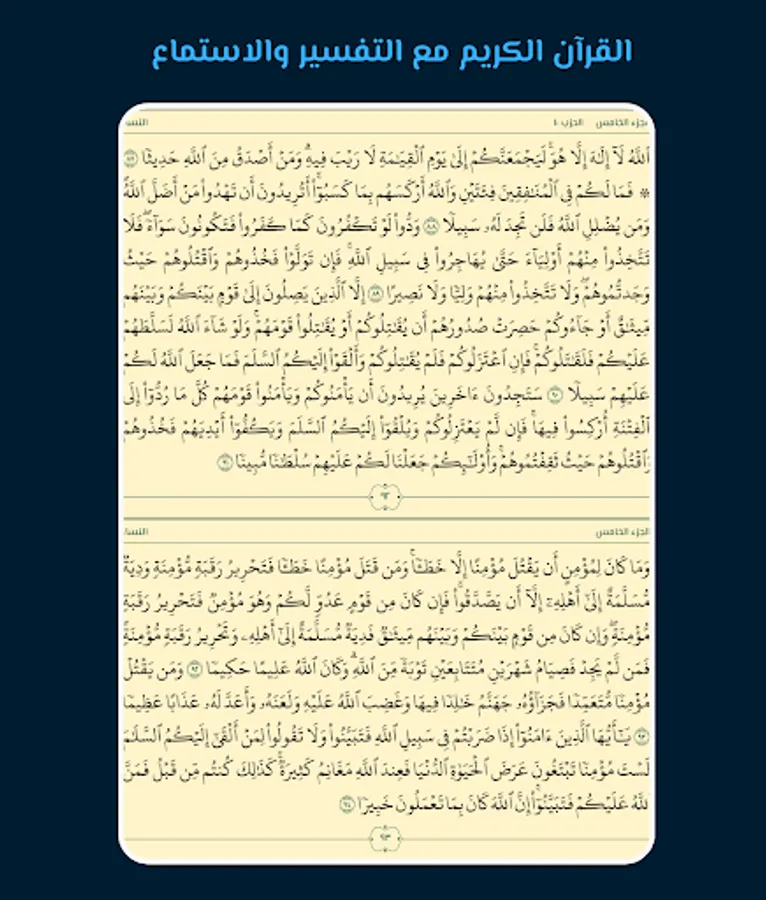 القرآن الكريم مع التفسير والاستماع
جزء الخامس الحزب ١٠ النسا
اللَّهُ لَا إِلَٰهَ إِلَّا هُوَ ۚ لَيَجْمَعَنَّكُمْ إِلَىٰ يَوْمِ الْقِيَٰمَةِ لَا رَيْبَ فِيهِ ۗ وَمَنْ أَصْدَقُ مِنَ اللَّهِ حَدِيثًا ٨٧
۞ فَمَا لَكُمْ فِي الْمُنَٰفِقِينَ فِئَتَيْنِ وَاللَّهُ أَرْكَسَهُم بِمَا كَسَبُوٓا۟ ۚ أَتُرِيدُونَ أَن تَهْدُوا۟ مَنْ أَضَلَّ اللَّهُ ۖ
وَمَن يُضْلِلِ اللَّهُ فَلَن تَجِدَ لَهُۥ سَبِيلًا ٨٨ وَدُّوا۟ لَوْ تَكْفُرُونَ كَمَا كَفَرُوا۟ فَتَكُونُونَ سَوَآءً ۖ فَلَا
تَتَّخِذُوا۟ مِنْهُمْ أَوْلِيَآءَ حَتَّىٰ يُهَاجِرُوا۟ فِي سَبِيلِ اللَّهِ ۚ فَإِن تَوَلَّوْا۟ فَخُذُوهُمْ وَاقْتُلُوهُمْ حَيْثُ
وَجَدتُّمُوهُمْ ۖ وَلَا تَتَّخِذُوا۟ مِنْهُمْ وَلِيًّا وَلَا نَصِيرًا ٨٩ إِلَّا الَّذِينَ يَصِلُونَ إِلَىٰ قَوْمٍ بَيْنَكُمْ وَبَيْنَهُم
مِّيثَٰقٌ أَوْ جَآءُوكُمْ حَصِرَتْ صُدُورُهُمْ أَن يُقَٰتِلُوكُمْ أَوْ يُقَٰتِلُوا۟ قَوْمَهُمْ ۚ وَلَوْ شَآءَ اللَّهُ لَسَلَّطَهُمْ
عَلَيْكُمْ فَلَقَٰتَلُوكُمْ ۚ فَإِنِ اعْتَزَلُوكُمْ فَلَمْ يُقَٰتِلُوكُمْ وَأَلْقَوْا۟ إِلَيْكُمُ السَّلَمَ فَمَا جَعَلَ اللَّهُ لَكُمْ
عَلَيْهِمْ سَبِيلًا ٩٠ سَتَجِدُونَ ءَاخَرِينَ يُرِيدُونَ أَن يَأْمَنُوكُمْ وَيَأْمَنُوا۟ قَوْمَهُمْ كُلَّ مَا رُدُّوٓا۟ إِلَى
الْفِتْنَةِ أُرْكِسُوا۟ فِيهَا ۚ فَإِن لَّمْ يَعْتَزِلُوكُمْ وَيُلْقُوٓا۟ إِلَيْكُمُ السَّلَمَ وَيَكُفُّوٓا۟ أَيْدِيَهُمْ فَخُذُوهُمْ
وَاقْتُلُوهُمْ حَيْثُ ثَقِفْتُمُوهُمْ ۚ وَأُو۟لَٰٓئِكُمْ جَعَلْنَا لَكُمْ عَلَيْهِمْ سُلْطَٰنًا مُّبِينًا ٩١
٩٢
الجزء الخامس النسا
وَمَا كَانَ لِمُؤْمِنٍ أَن يَقْتُلَ مُؤْمِنًا إِلَّا خَطَـًٔا ۚ وَمَن قَتَلَ مُؤْمِنًا خَطَـًٔا فَتَحْرِيرُ رَقَبَةٍ مُّؤْمِنَةٍ وَدِيَةٌ
مُّسَلَّمَةٌ إِلَىٰٓ أَهْلِهِۦٓ إِلَّآ أَن يَصَّدَّقُوا۟ ۚ فَإِن كَانَ مِن قَوْمٍ عَدُوٍّ لَّكُمْ وَهُوَ مُؤْمِنٌ فَتَحْرِيرُ رَقَبَةٍ
مُّؤْمِنَةٍ ۖ وَإِن كَانَ مِن قَوْمٍ بَيْنَكُمْ وَبَيْنَهُم مِّيثَٰقٌ فَدِيَةٌ مُّسَلَّمَةٌ إِلَىٰٓ أَهْلِهِۦ وَتَحْرِيرُ رَقَبَةٍ مُّؤْمِنَةٍ ۖ
فَمَن لَّمْ يَجِدْ فَصِيَامُ شَهْرَيْنِ مُتَتَابِعَيْنِ تَوْبَةً مِّنَ اللَّهِ ۗ وَكَانَ اللَّهُ عَلِيمًا حَكِيمًا ٩٢ وَمَن يَقْتُلْ
مُؤْمِنًا مُّتَعَمِّدًا فَجَزَآؤُهُۥ جَهَنَّمُ خَٰلِدًا فِيهَا وَغَضِبَ اللَّهُ عَلَيْهِ وَلَعَنَهُۥ وَأَعَدَّ لَهُۥ عَذَابًا عَظِيمًا
٩٣ يَٰٓأَيُّهَا الَّذِينَ ءَامَنُوٓا۟ إِذَا ضَرَبْتُمْ فِي سَبِيلِ اللَّهِ فَتَبَيَّنُوا۟ وَلَا تَقُولُوا۟ لِمَنْ أَلْقَىٰٓ إِلَيْكُمُ السَّلَٰمَ
لَسْتَ مُؤْمِنًا تَبْتَغُونَ عَرَضَ الْحَيَوٰةِ الدُّنْيَا فَعِندَ اللَّهِ مَغَانِمُ كَثِيرَةٌ ۚ كَذَٰلِكَ كُنتُم مِّن قَبْلُ فَمَنَّ
اللَّهُ عَلَيْكُمْ فَتَبَيَّنُوٓا۟ ۚ إِنَّ اللَّهَ كَانَ بِمَا تَعْمَلُونَ خَبِيرًا ٩٤
٩٣